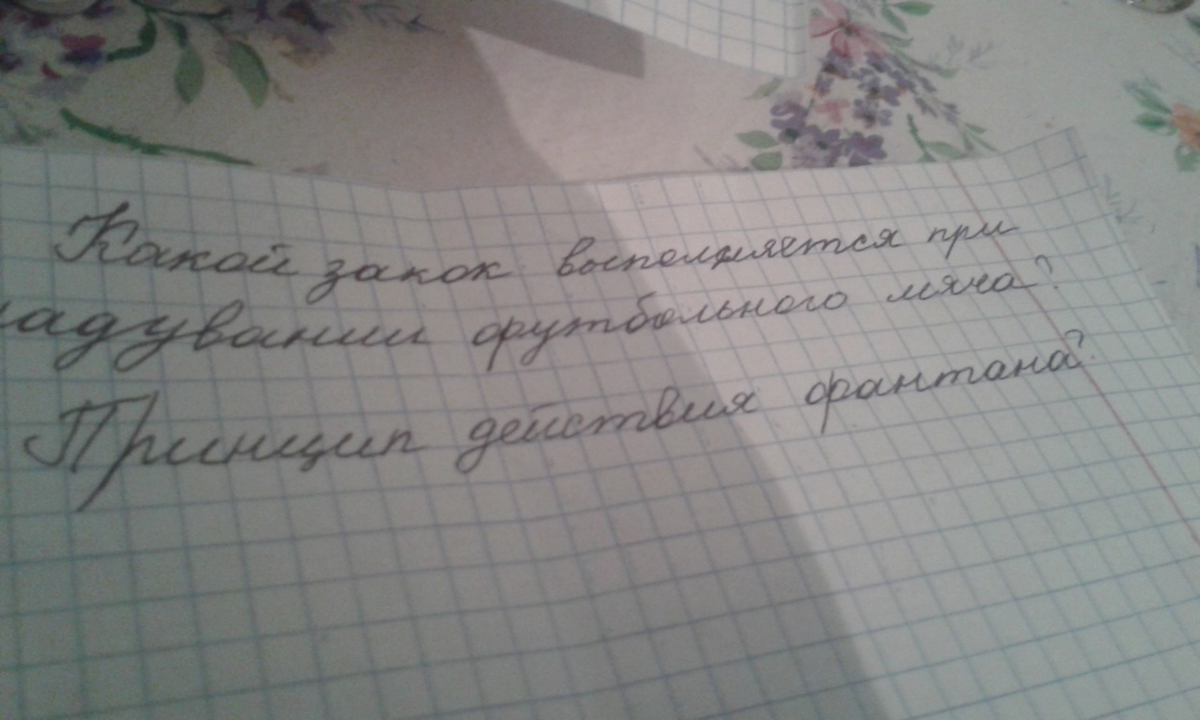 Какой закок выполняется при
надувании футбольного мяча?
Принцип действия фантана?